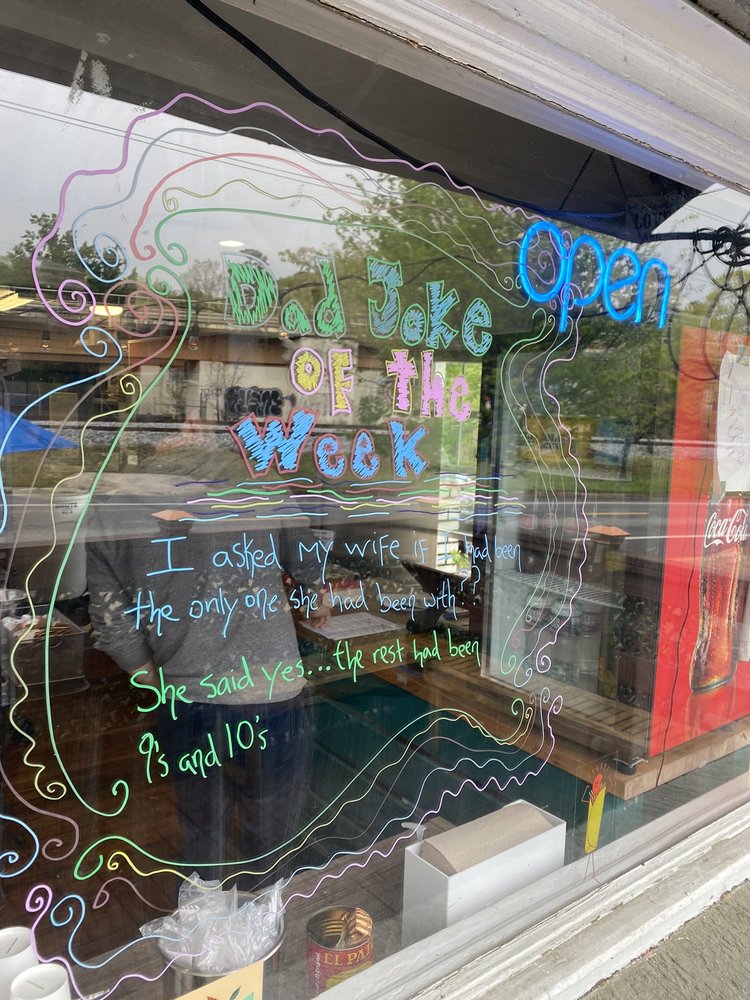 open
Dad Joke
OF the
Week
I asked My wife if I had been
the only one she had been with??
She said yes...the rest had been
9's and 10's
Coca-Cola
EL PA